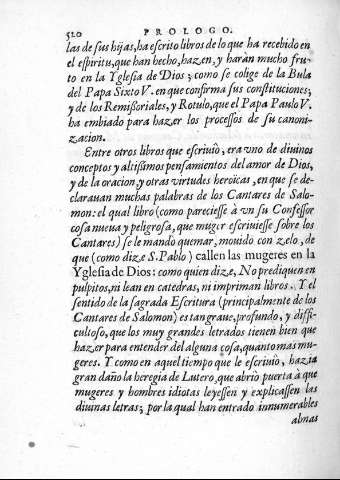 520 PROLOGO.
las de sus hijas, ha escrito libros de lo que ha recebido en
el espiritu, que han hecho, hazen, y haràn mucho fru-
to en la Yglesia de Dios; como se colige de la Bula
del Papa Sixto V. en que confirma sus constituciones;
y de los Remissoriales, y Rotulo, que el Papa Paulo V.
ha embiado para hazer los processos de su canoni-
zacion.
Entre otros libros que escriuiò, era vno de diuinos
conceptos y altissimos pensamientos del amor de Dios,
y de la oracion, y otras virtudes heroicas, en que se de-
clarauan muchas palabras de los Cantares de Salo-
mon: el qual libro (como pareciesse à vn su Confessor
cosa nueua y peligrosa, que muger escriuiesse sobre los
Cantares) se le mandò quemar, mouido con zelo, de
que (como dize S. Pablo) callen las mugeres en la
Yglesia de Dios: como quien dize, No prediquen en
pulpitos, ni lean en catedras, ni impriman libros. Y el
sentido de la sagrada Escritura (principalmente de los
Cantares de Salomon) es tan graue, profundo, y diffi-
cultoso, que los muy grandes letrados tienen bien que
hazer para entender del alguna cosa, quanto mas mu-
geres. Y como en aquel tiempo que le escriuiò, hazia
gran daño la heregia de Lutero, que abrio puerta à que
mugeres y hombres idiotas leyessen y explicassen las
diuinas letras; por la qual han entrado innumerables
almas